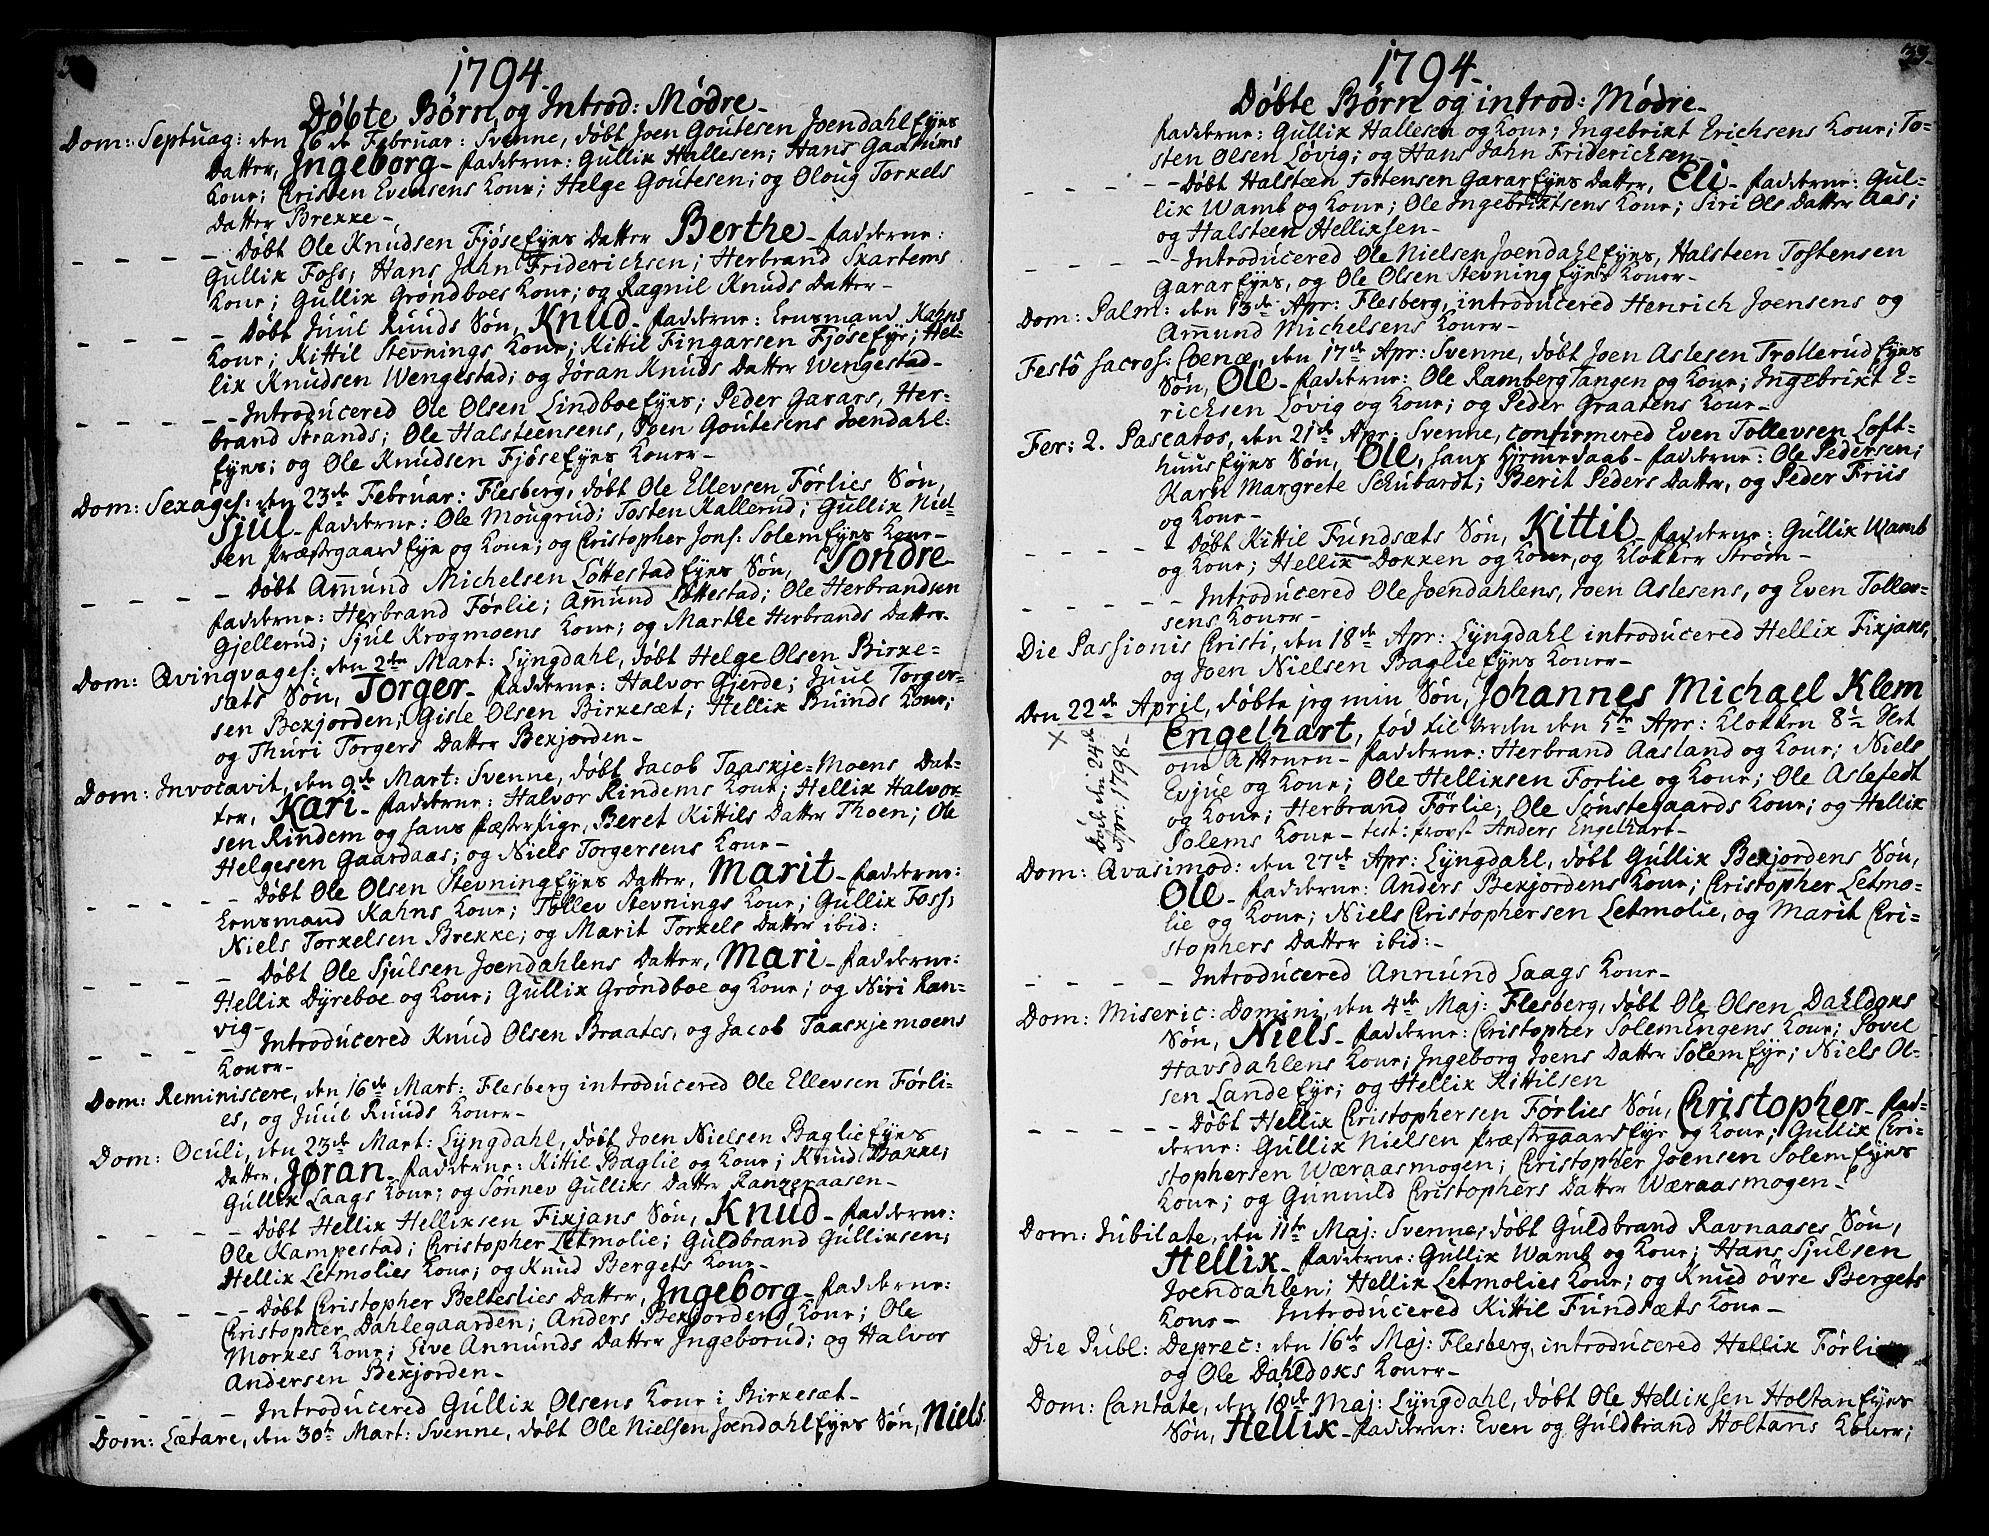 1794.
Døbte Børn, og Introd: Mødre.
Dom: Septuag: den 16de Februar: Svenne, døbt Joen Goutesen Joendahl Eyes
Datter, Ingeborg. fadderne: Gullix Hallesen; Hans Gaarims
Kone; Cristen Evensens Kone; Helge Goutesen; og Oloug Torkels
Datter Brekke.
- - - - Døbt Ole Knudsen Fjøse Eyes Datter Berthe. fadderne:
Gullix Foss; Hans Jahn Friderichsen; Herbrand Skartems
Kone; Gullix Grøndboes Kone; og Ragnil Knuds Datter.
- - - - Døbt Juul Ruuds Søn, Knud. fadderne: Lensmand Kahns
Kone; Kittil Stevnings Kone; Kittil Fingarsen Fjøse Eye; Hel-
lix Knudsen Wengestad; og Jøran Knuds Datter Wengestad.
- - - - Introducered Ole Olsen Lindboe Eyes; Peder Garars, Her-
brand Strands; Ole Halsteensens, Joen Goutesens Joendahl-
Eyes; og Ole Knudsen Fjøse Eyes Koner.
Dom: Sexages: den 23de Februar: Flesberg, døbt Ole Ellevsen Førlies Søn,
Sjul. fadderne: Ole Mougrud; Tosten Kallerud; Gullix Niel-
sen Præstegaard Eye og Kone; og Christopher Jons: Solem Eyes Kone.
- - - - Døbt Amund Michelsen Løttestad Eyes Søn, Sondre
fadderne: Herbrand Førlie; Amund Løttestad; Ole Herbrandsen
Gjellerud; Sjul Krogmoens Kone; og Marthe Herbrands Datter.
Dom: Qvingvages: den 2den Mart: Lyngdahl, døbt Helge Olsen Birke-
sæts Søn, Torger. fadderne: Halvor Gjerde; Juul Torger-
sen Bexjorden; Gisle Olsen Birkesæt; Hellix Buinds Kone;
og Thuri Torgers Datter Bexjorden.
Dom: Invocavit, den 9de Mart: Svenne, døbt Jacob Taaskje-Moens Dat-
ter, Kari. fadderne: Halvor Rindems Kone; Hellix Halvor-
sen Rindem og hans fæstepige, Beret Kittils Datter Thoen; Ole
Helgesen Gaardaas; og Niels Torgersens Kone.
- - - - Døbt Ole Olsen Stevning Eyes Datter, Marit. fadderne:
Lensmand Kahns Kone; Tollev Stevnings Kone; Gullix Foss;
Niels Torkelsen Brekke; og Marit Torkels Datter ibid:
- - - - Døbt Ole Sjulsen Joendahlens Datter, Mari. fadderne:
Hellix Dyreboe og Kone; Gullix Grøndboe og Kone; og Niri Ran-
vig.
- - - - Introducered Knud Olsen Braates, og Jacob Taaskjemoens
Koner.
Dom: Reminiscere, den 16de Mart: Flesberg introducered Ole Ellevsen Førli-
es, og Juul Ruuds Koner.
Dom: Oculi, den 23de Mart: Lyngdahl, døbt Joen Nielsen Baglie Eyes
Datter, Jøran. fadderne: Kittil Baglie og Kone; Knud Bakke;
Gullix Laags Kone; og Sønnev Gullixs Datter Rangeraasen.
- - - - Døbt Hellix Hellixsen Fixjans Søn, Knud. fadderne:
Ole Kampestad; Christopher Letmolie; Guldbrand Gullixsen;
Hellix Letmolies Kone; og Knud Bergets Kone.
- - - - Døbt Christopher Belteslies Datter, Ingeborg. fadderne:
Christopher Dahlegaarden; Anders Bexjordens Kone; Ole
Morkes Kone; Live Annunds Datter Ingeborud; og Halvor
Andersen Bexjorden.
- - - - Introducered Gullix Olsens Kone i Birkesæt.
Dom: Lætare, den 30te Mart: Svenne, døbt Ole Nielsen Joendahl Eyes Søn, Niels.
33.
1794.
Døbte Børn og introd: Mødre.
fadderne: Gullix Hallesen og Kone; Ingebrixt Erichsens Kone; To-
sten Olsen Løvig; og Hans Jahn Friderichsen.
- - - - Døbt Halsteen Tostensen Garar Eyes Datter, Eli. fadderne: Gul-
lix Wamb og Kone; Ole Ingebrixtsens Kone; Siri Ols Datter Aas;
og Halsteen Hellixsen.
- - - - Introducered Ole Nielsen Joendahl Eyes, Halsteen Tostensen
Garar Eyes, og Ole Olsen Stevning Eyes Koner.
Dom: Palm: den 13de Apr: Flesberg, introducered Henrich Joensens og
Amund Michelsens Koner.
Festô sacros: Coenæ, den 17de Apr: Svenne, døbt Joen Aslesen Trollerud Eyes
Søn, Ole. fadderne: Ole Ramberg Tangen og Kone; Ingebrixt E-
richsen Løvig og Kone; og Peder Graatens Kone.
Fer: 2. Pascatos, den 21de Apr: Svenne, confirmered Even Tollevsen Loft-
huus Eyes Søn, Ole, hans Hjemedaab. fadderne: Ole Pedersen;
Karn Margrete Schubardt; Berit Peders Datter, og Peder Friis
og Kone.
- - - - Døbt Kittil Fundsæts Søn, Kittil. fadderne: Gullix Wamb
og Kone; Hellix Dokken og Kone, og Klokker Strøm.
- - - - Introducered Ole Joendahlens, Joen Aslesens, og Even Tollev-
sens Koner.
Die Passionis Cristi, den 18de Apr: Lyngdahl introducered Hellix Fixjans,
og Joen Nielsen Baglie Eyes Koner.
Den 22de April, døbte jeg min Søn, Johannes Michael Klem
Engelhart, fød til Verden den 5te Apr: Klokken 8 1/2 Slet
om Aftenen. fadderne: Herbrand Aasland og Kone; Niels
Evjue og Kone; Ole Hellixsen Førlie og Kone; Ole Aslefedt
og Kone; Herbrand Førlie; Ole Sønstegaards Kone; og Hellix
Solems Kone. test: Provst Anders Engelhart.
× Døde den 24de
Apr: 1798.
Dom: Qvasimod: den 27de Apr: Lyngdahl, døbt Gullix Bexjordens Søn,
Ole. fadderne: Anders Bexjordens Kone; Christopher Letmo-
lie og Kone; Niels Christophersen Letmolie, og Marit Cri-
stophers Datter ibid:
- - - - Introducered Annund Laags Kone.
Dom: Miseric: Domini, den 4de Maj: Flesberg, døbt Ole Olsen Dahldoks
Søn, Niels. fadderne: Christopher Solemingens Kone; Povel
Havsdahlens Kone; Ingeborg Joens Datter Solem Eye; Niels Ol-
sen Lande Eye; og Hellix Kittilsen
- - - - Døbt Hellix Christophersen Førlies Søn, Christopher. fad-
derne: Gullix Nielsen Præstegaard Eye og Kone; Gullix Cri-
stophersen Wæraasmogen; Christopher Joensen Solem Eyes
Kone; og Gunnild Christophers Datter Wæraasmogen.
Dom: Jubilate, den 11te Maj: Svenne, døbt Guldbrand Ravnaases Søn,
Hellix. fadderne: Gullix Wamb og Kone; Hans Sjulsen
Joendahlen; Hellix Letmolies Kone; og Knud øvre Bergets
Kone. Introducered Kittil Fundsæts Kone.
Die Publ: Deprec: den 16de Maj: Flesberg, introducered Hellix Førli
og Ole Dahldoks Koner.
Dom: Cantate, den 18de Maj: Lyngdahl, døbt Ole Hellixsen Holtan Eyes
Søn, Hellix. fadderne: Even og Guldbrand Holtans Koner;